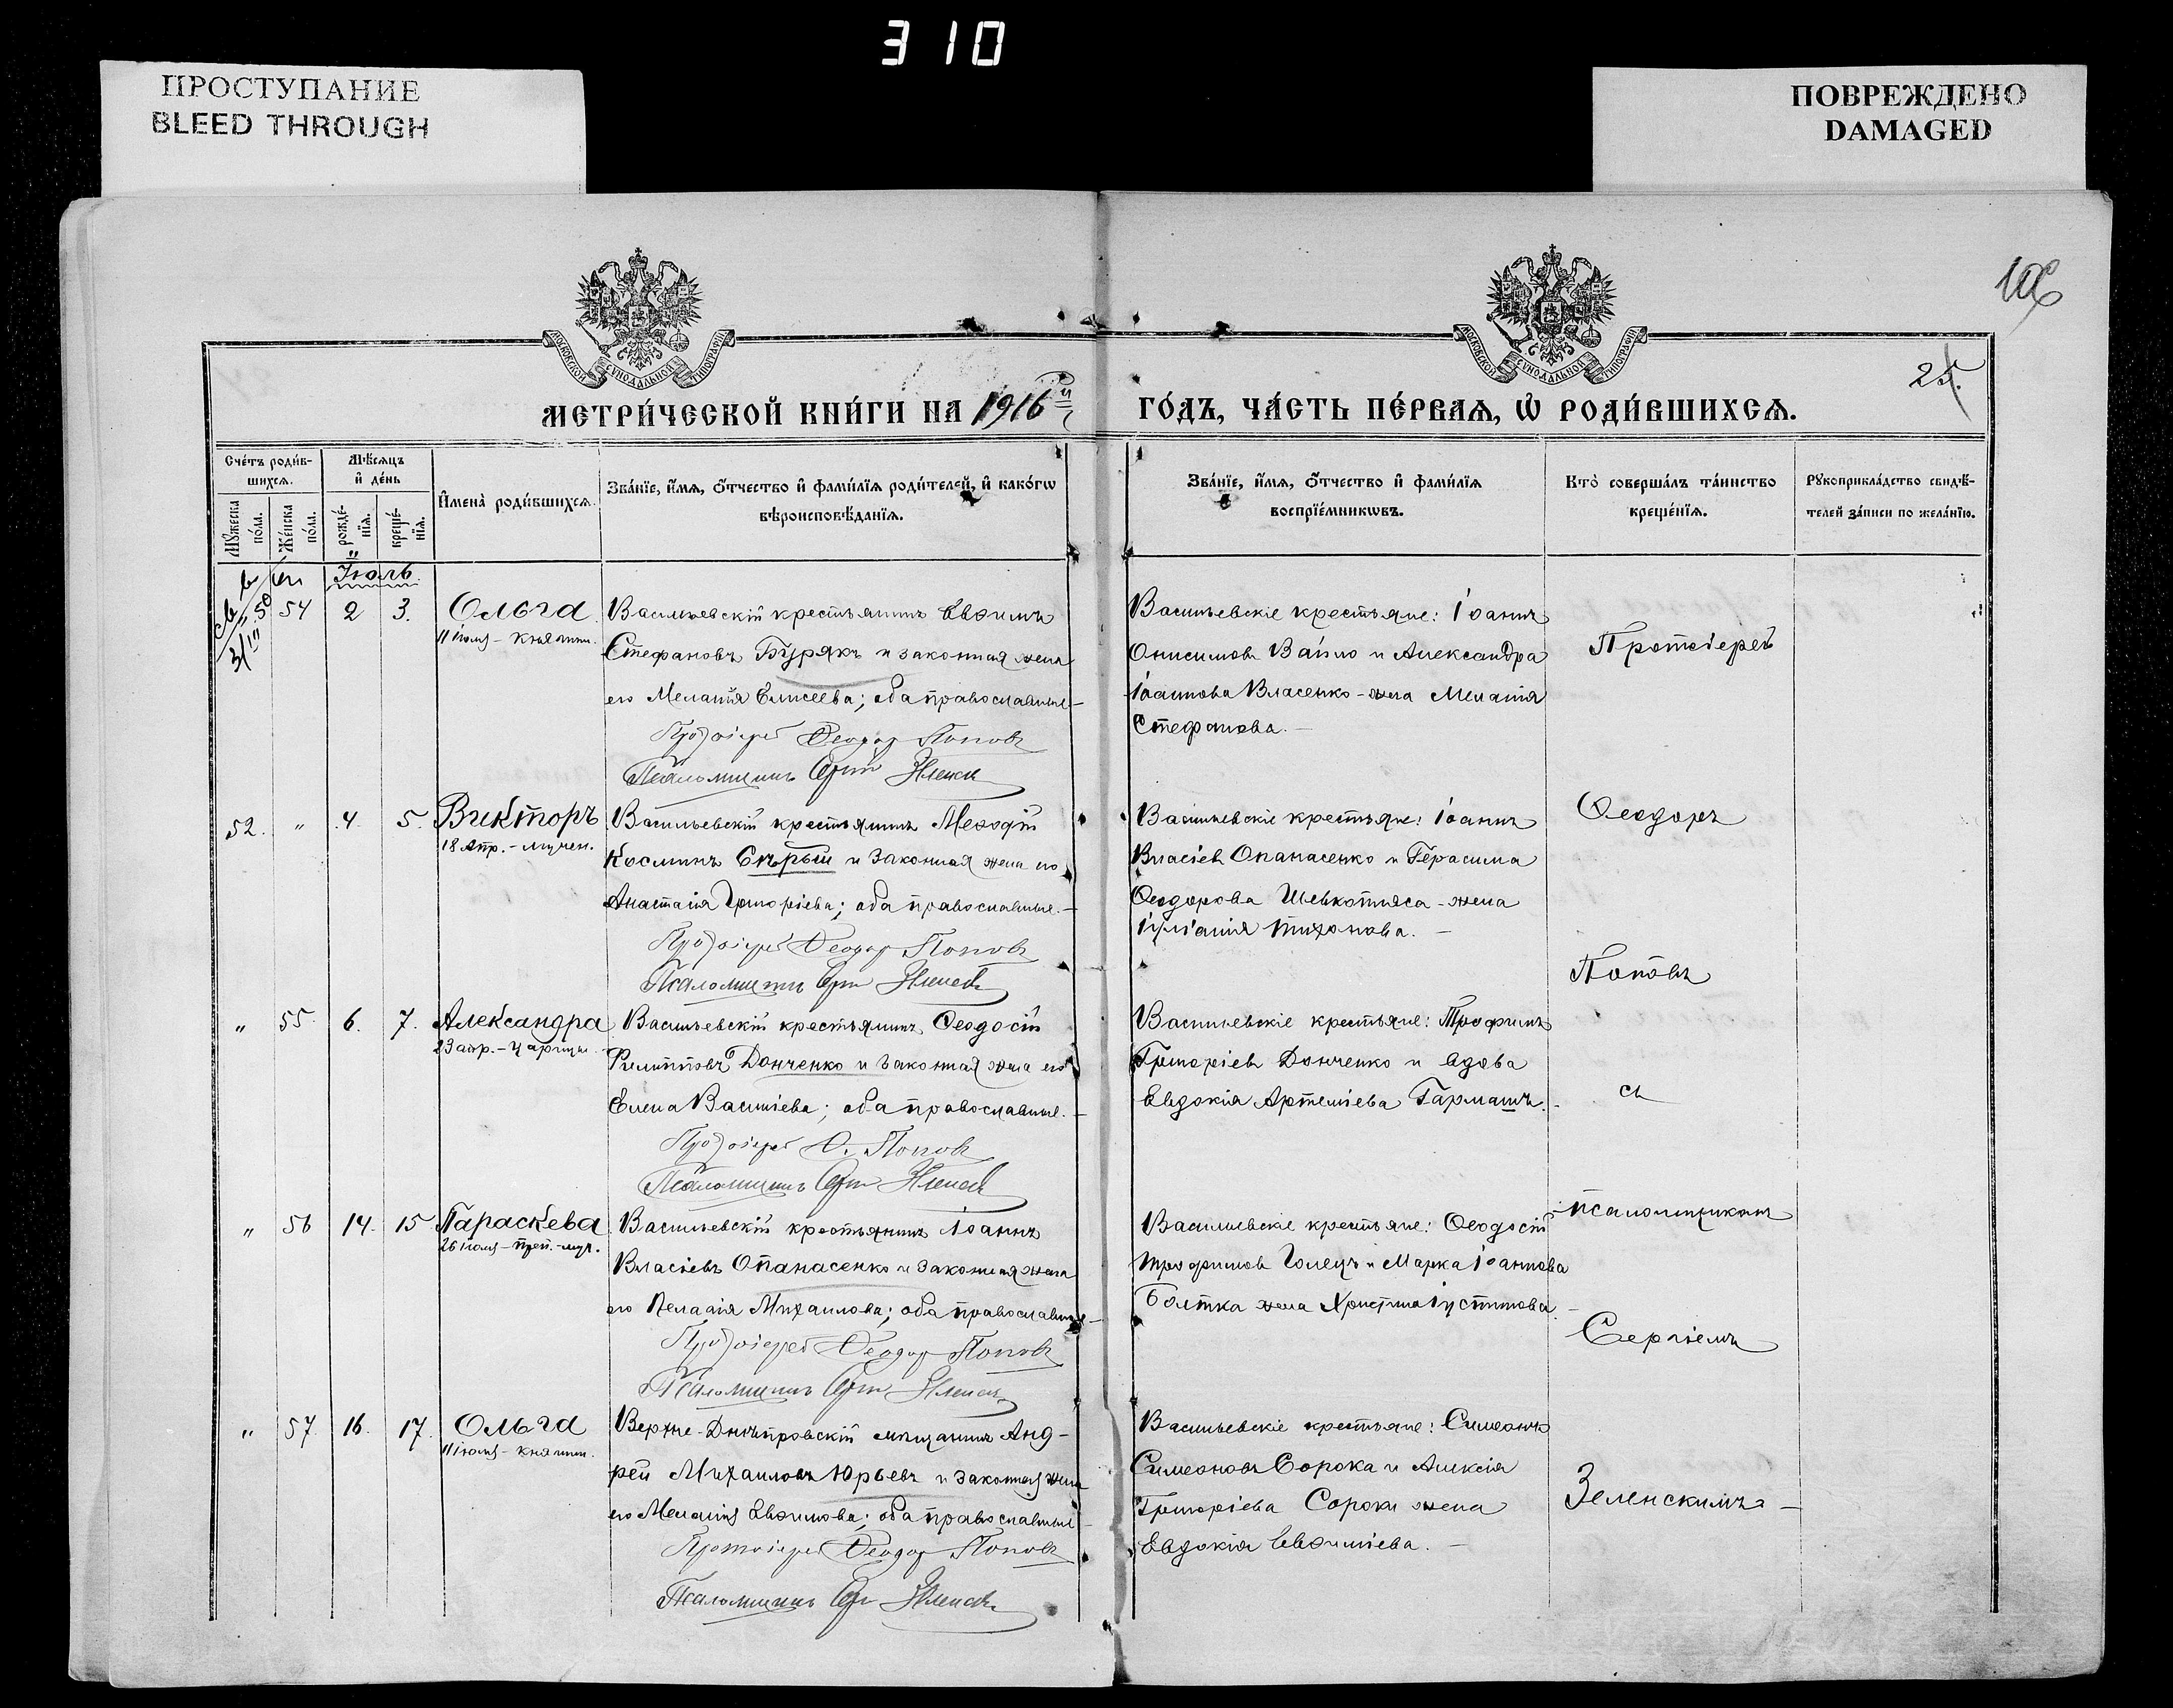 310
ПРОСТУПАНИЕ
BLEED THROUGH
ПОВРЕЖДЕНО
DAMAGED
МОСКОВСКОЙ СѴНОДАЛЬНОЙ ТИПОГРАФІИ
МОСКОВСКОЙ СѴНОДАЛЬНОЙ ТИПОГРАФІИ
25.
МЕТРИ́ЧЕСКОЙ КНИ́ГИ НА 1916й ГО́ДЪ, ЧА́СТЬ ПЕ́РВАЯ, Ѡ РОДИ́ВШИХСЯ.
Сче́тъ роди́в-
шихся.
Мꙋ́жеска по́ла.
Же́нска по́ла.
Мѣ́сяцъ
и҆ де́нь
рожде́-нїя.
креще́-нїя.
И҆мена̀ роди́вшихся.
Зва́нїе, и҆́мя, ѻ҆́тчество и҆ фами́лїя роди́телей, и҆ како́гѡ
вѣроисповѣ́данїя.
Зва́нїе, и҆́мя, ѻ҆́тчество и҆ фами́лїя
воспрїе́мникѡвъ.
Кто̀ соверша́лъ та́инство
креще́нїя.
Рꙋкоприкла́дство свидѣ́-
телей за́писи по жела́нїю.
Іюль.
54 2 3. Ольга
11 іюля - княгини.
Васильевскій крестьянинъ Евѳимъ
Стефановъ Бурякъ и законная жена
его Меланія Елисеева; оба православные. -
Протоіерей Ѳеодор Поповъ
Псаломщикъ
Васильевскіе крестьяне: Іоаннъ
Онисимовъ Вайло и Александра
Іоаннова Власенко - жена Меланія
Стефанова. -
52. " 4. 5. Викторъ
18 Апр. - мучен.
Васильевскій крестьянинъ Меѳодій
Косминъ Сѣрый и законная жена его
Анастасія Григоріева; оба православные. -
Протоіерей Ѳеодор Поповъ
Псаломщикъ
Васильевскіе крестьяне: Іоаннъ
Власіевъ Опанасенко и Герасима
Ѳеодорова Шевкопляса - жена
Іуліанія Тихонова. -
" 55. 6. 7. Александра
23 апр. - царицы.
Васильевскій крестьянинъ Ѳеодосій
Филипповъ Донченко и законная жена его
Елена Василіева; оба православные. -
Протоіерей Ѳ. Поповъ
Псаломщикъ
Васильевскіе крестьяне: Трофимъ
Григоріевъ Донченко и вдова
Евдокія Артеміева Гармашъ. -
" 56 14. 15 Параскева
26 іюля - преп.-муч.
Васильевскій крестьянинъ Іоаннъ
Власіевъ Опанасенко и законная жена
его Пелагія Михаилова; оба православные -
Протоіерей Ѳеодор Поповъ
Псаломщикъ
Васильевскіе крестьяне: Ѳеодосій
Трофимовъ Голецъ и Марка Іоаннова
Болтка жена Христина Іустинова. -
" 57. 16. 17. Ольга
11 іюля - княгини.
Верхне-Днѣпровскій мѣщанинъ Анд-
рей Михаиловъ Юрьевъ и законная жена
его Меланія Евѳимова; оба православные -
Протоіерей Ѳеодор Поповъ
Псаломщикъ
Васильевскіе крестьяне: Симеонъ
Симеоновъ Сорока и Алексія
Григоріева Сороки жена
Евдокія Евѳиміева. -
Протоіерей
Ѳеодоръ
Поповъ
съ
псаломщикомъ
Сергіемъ
Зеленскимъ -